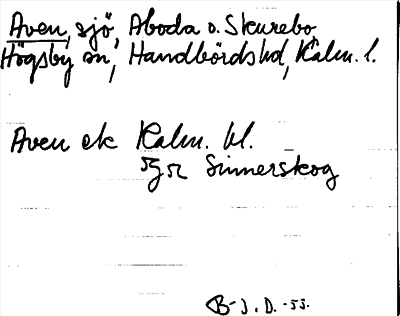 Aven, sjö, Aboda o. Skurebo
Högsby sn, Handbörds hd, Kalm. l.
Aven ek Kalm. bl.
5 g 52 Sinnerskog
B-J. D. -53.